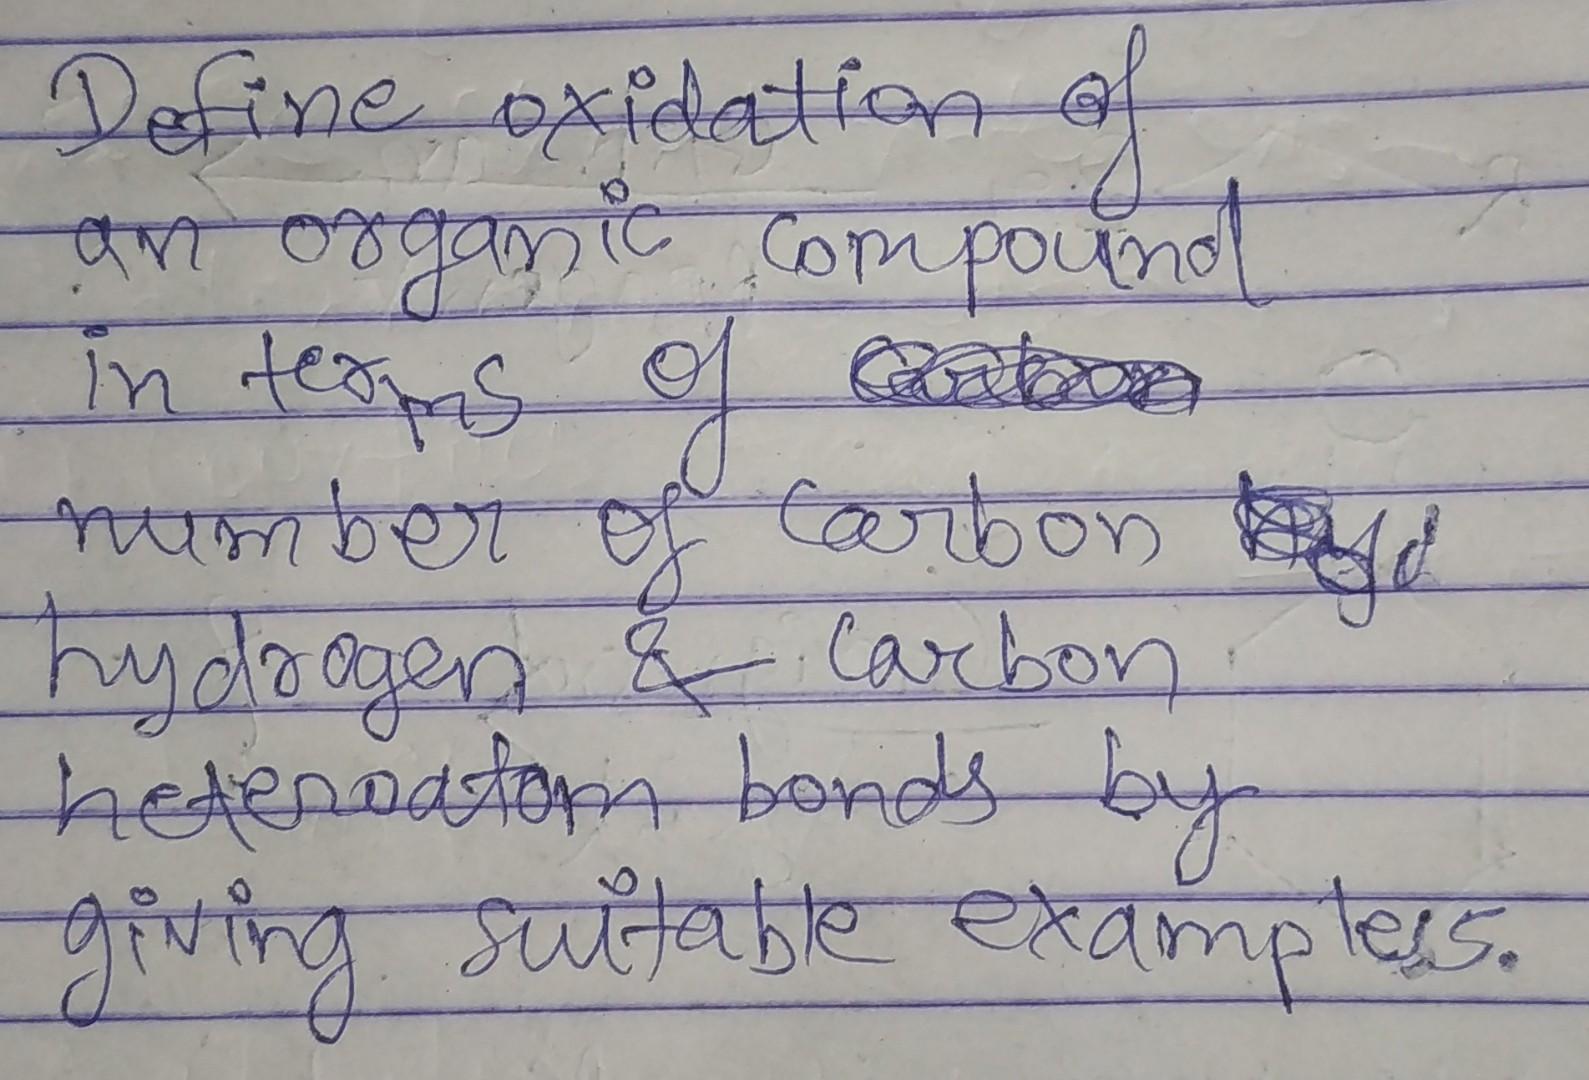 Define oxidation of
an organic compound
in terms of
number of carbon
hydrogen & carbon
heteroatom bonds by
giving suitable examples.